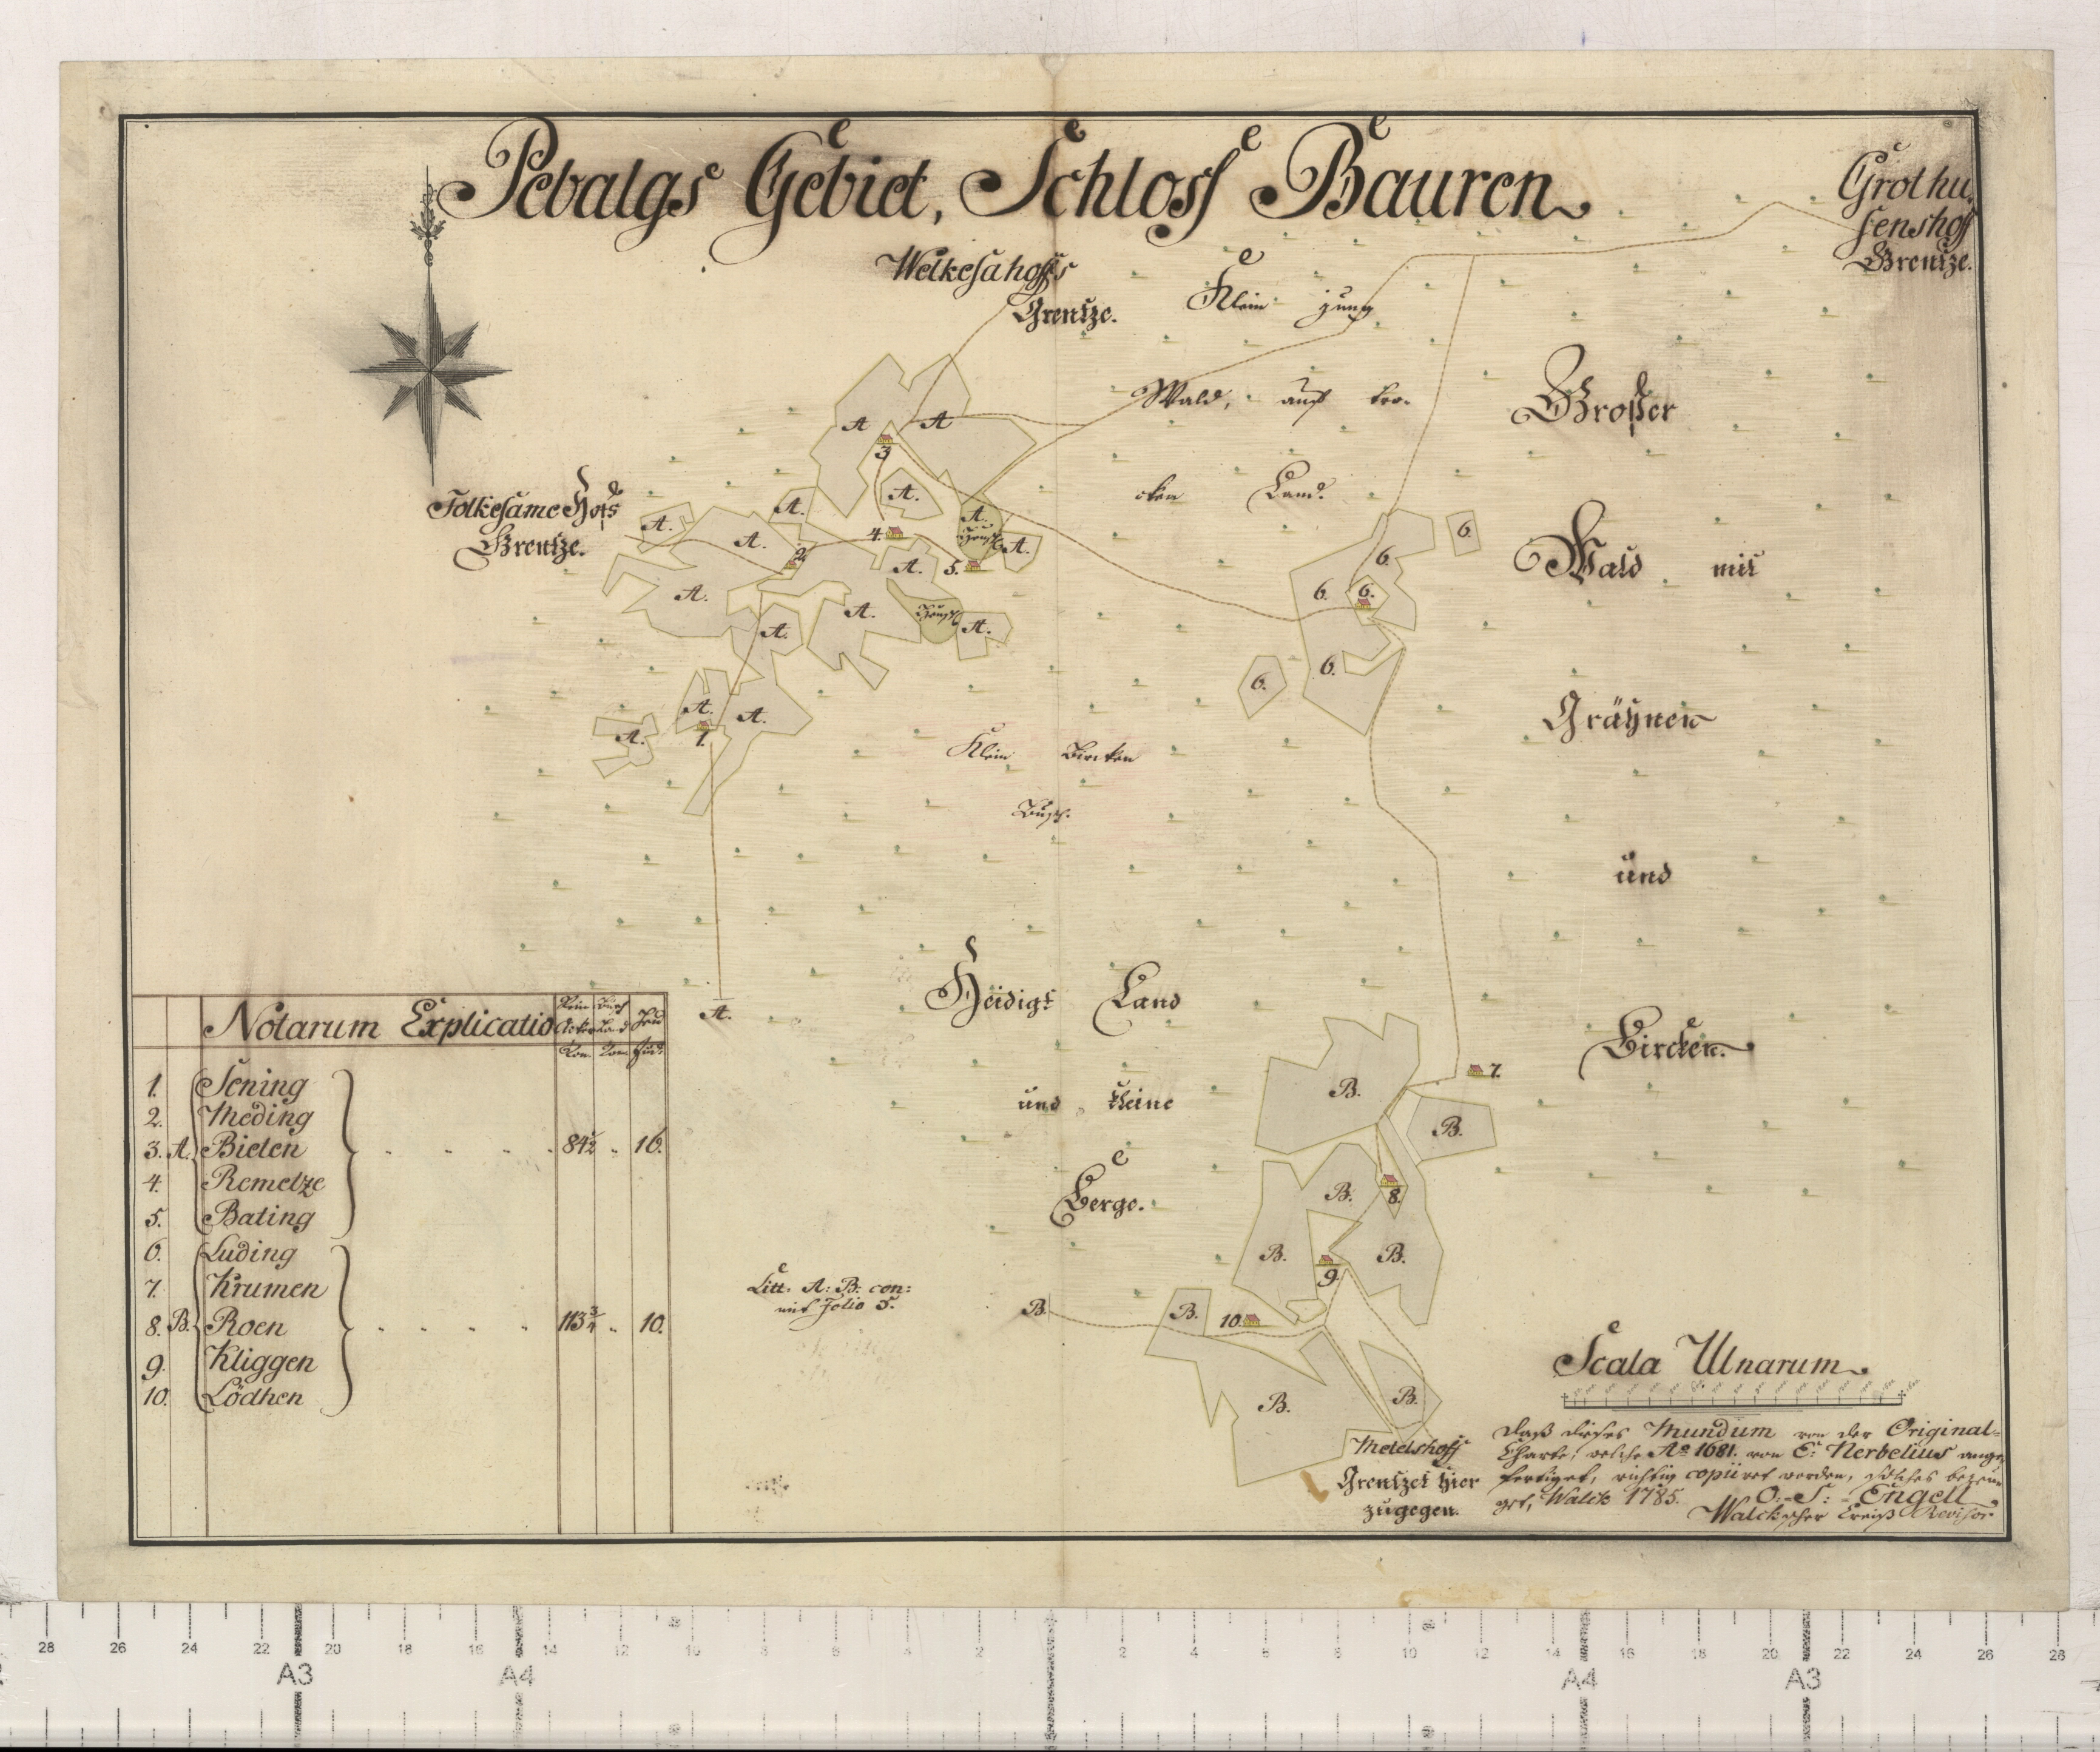 Pebalgs Gebiet, Schloss Bauren
Grothu
senshoff
Grentze.
Welkesahoffs
Grentze.
Klein jung
Wald, auf tro-
cken Land.
Großer
Wald mit
Grähnen
und
Bircken.
Folkesame Hofs
Grentze.
A A
3
A. A. A.
4.
A.
A.
2
A. A.
5.
A.
A.
A.
A.
A.
A. A.
A.
1.
6.
6.
6. 6.
6.
6.
Klein Bircken
Busch.
A.
Heidigt Land
und kleine
Berge.
7.
B.
B.
B. 8.
B. B.
9.
B. B. 10.
B. B.
Litt. A: B: con:
mit Folio 5.
Notarum Explicatio
Acker Land Heu
1. Sening
2. Meding
3. A. Bieten 84½ 16.
4. Remetze
5. Bating
6. Luding
7. Krumen
8. B. Roen 113¾ 10.
9. Kliggen
10. Lödhen
Metelshoff
Grentzet hier
zugegen.
Scala Ulnarum
Daß dieses Mundum von der Original-
Charte, welche Ao 1681. von E: Nerbelius ange-
fertiget, richtig copiiret worden, solches bezeu-
get, Walck 1785. O: S: Engell
Walckscher Kreiß Revisor
28 26 24 22 20 18 16 14 12 10 8 6 4 2 2 4 6 8 10 12 14 16 18 20 22 24 26 28
A3 A4 A4 A3